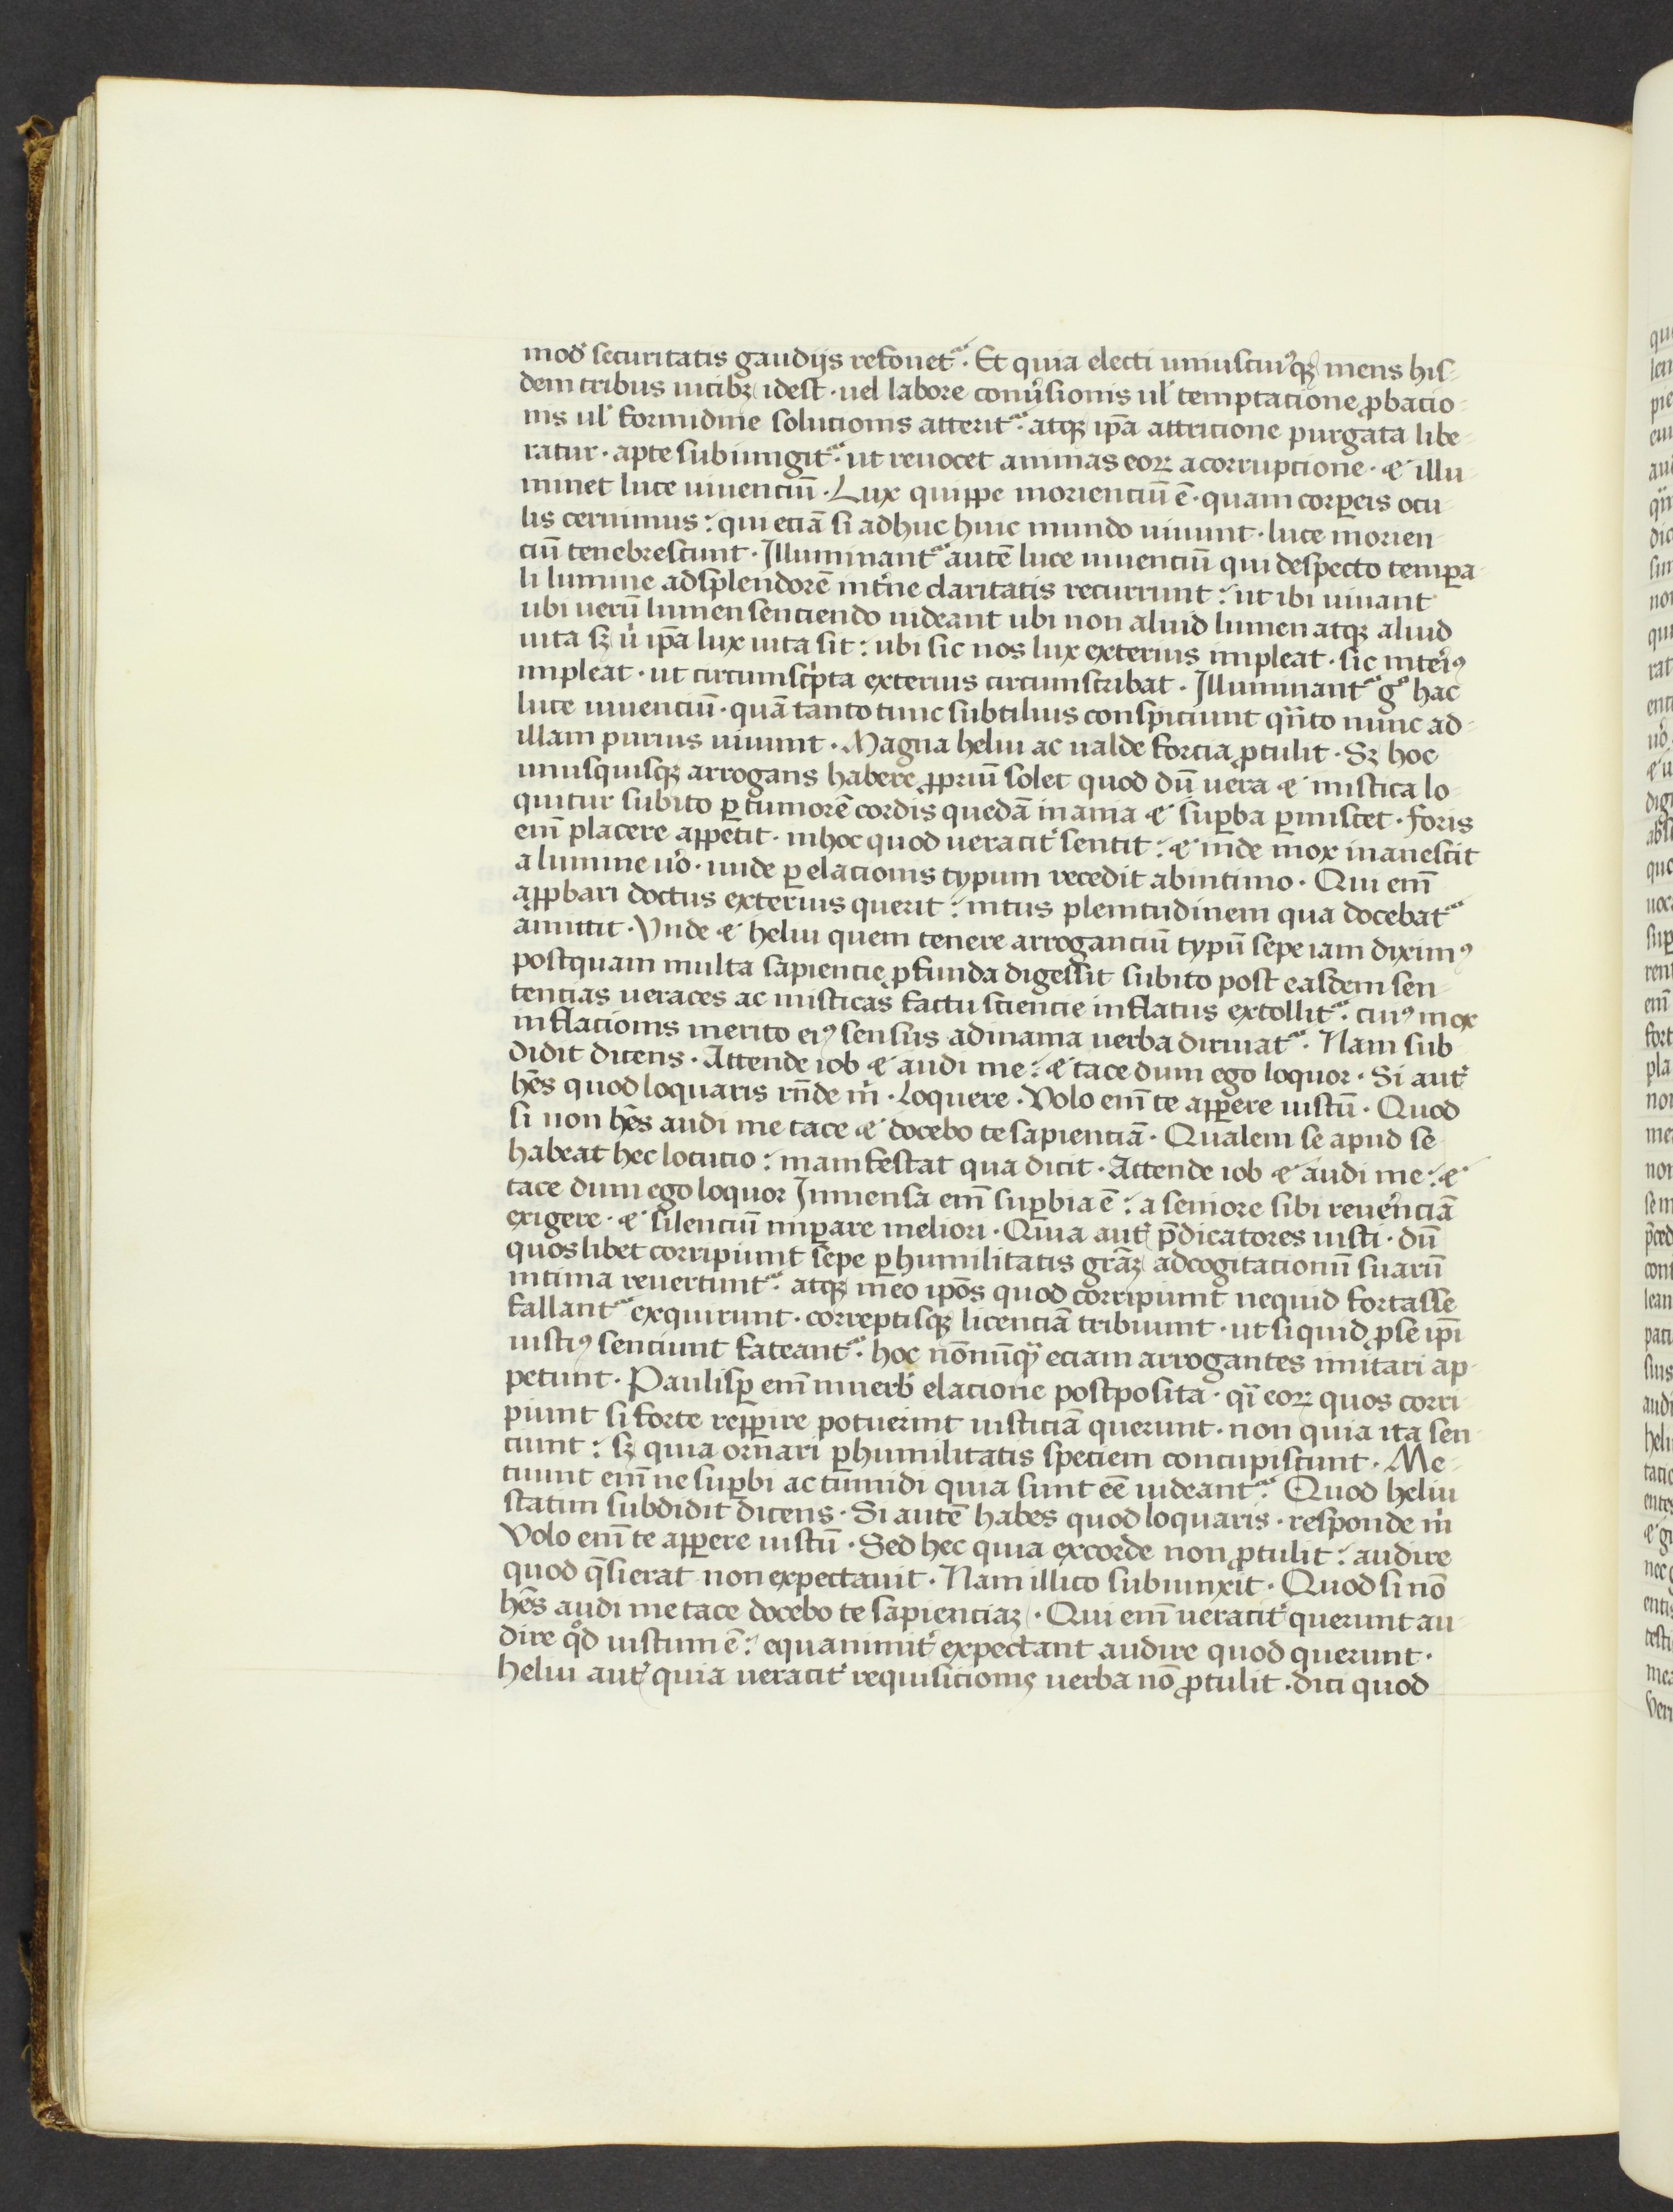 mod̓ securitatis gaudijs refouet᷑. Et quia electi uniuscui᷒qꝫ mens his-
dem tribus uicibꝫ idest · uel labore conu͛sionis ul̓ temptacione ꝓbacio
nis ul̓ formidine solucionis atterit᷑· atqꝫ ip̄a attricione purgata libe-
ratur · apte subiungit᷑· ut reuocet animas eoꝝ acorrupcione · ⁊ illu
minet luce uiuenciū · Lux quippe morienciū ē · quam corꝑeis ocu
lis cernimus : qui eciā si adhuc huic mundo uiuunt · luce morien
ciū tenebrescunt · Illuminant᷑ autē luce uiuenciū qui despecto temꝑa
li lumine adsplendorē int͛ne claritatis recurrunt : ut ibi uiuant
ubi uerū lumen senciendo uideant ubi non aliud lumen atqꝫ aliud
uita sꝫ uͥ ip̄a lux uita sit : ubi sic nos lux exterius impleat · sic interiꝰ
impleat · ut circumscͥpta exterius circumscribat · Illuminant᷑ gͦ hac
luce uiuenciū · quā tanto tunc subtilius conspiciunt qn̄to nunc ad-
illam purius uiuunt · Magna heliu ac ualde forcia ꝓtulit · Sꝫ hoc
unusquisqꝫ arrogans habere ꝓpriū solet quod dū uera ⁊ mistica lo
quitur subito ꝑ tumorē cordis quedā inania ⁊ suꝑba ꝑmiscet · foris
em̄ placere appetit · inhoc quod ueracit͛ sentit : ⁊ inde mox inanescit
a lumine uͦo · unde ꝑ elacionis typum recedit abintimo · Qui em̄
apꝓbari doctus exterius querit : intus plenitudinem qua docebat᷑
amittit · Unde ⁊ heliu quem tenere arroganciū typū sepe iam diximꝰ
postquam multa sapiencie ꝓfunda digessit subito post easdem sen
tencias ueraces ac misticas factu sciencie inflatus extollit᷑· cuiꝰ mox
inflacionis merito eiꝰ sensus adinania uerba diriuat᷑· Nam sub
didit dicens · Attende iob ⁊ audi me : ⁊ tace dum ego loquor · Si aut͛
hēs quod loquaris rn̄de mͥ · Loquere · Volo em̄ te apꝑere iustū · Quod
si non hēs audi me tace ⁊ docebo te sapienciā · Qualem se apud se
habeat hec locucio : manifestat qua dicit · Attende iob ⁊ audi me : ⁊
tace dum ego loquor Inmensa em̄ suꝑbia ē : a seniore sibi reuer͛nciā
exigere · ⁊ silenciū imꝑare meliori · Quia aut͛ p̄dicatores iusti · dū
quos libet corripiunt sepe ꝑ humilitatis grāꝫ adcogitacionū suarū
intima reuertunt᷑· atqꝫ ineo ip̄os quod corripiunt nequid fortasse
fallant᷑ exquirunt · correptisqꝫ licenciā tribuunt · ut siquid ꝓse ip̄i
iustiꝰ senciunt fateant᷑· hoc nōnūqᷓ eciam arrogantes imitari ap-
petunt · Paulisꝑ em̄ inuerb̓ elacione postposita · qͥ eoꝝ quos corri
piunt si forte repꝑire potuerint iusticiā querunt · non quia ita sen
ciunt : sꝫ quia ornari ꝑ humilitatis speciem concupiscunt · Me-
tuunt em̄ ne suꝑbi ac tumidi quia sunt eē uideant᷑· Quod heliu
statim subdidit dicens · Si autē habes quod loquaris · responde mͥ
Volo em̄ te apꝑere iustū · Sed hec quia excorde non ꝓtulit : audire
quod q̄sierat non expectauit · Nam illico subiunxit · Quod si nō
hēs audi me tace docebo te sapienciaꝫ · Qui em̄ ueracit͛ querunt au
dire qͦd iustum ē : equanimit͛ expectant audire quod querunt ·
Heliu aut͛ quia ueracit͛ requisicionis uerba nō ꝓtulit · dici quod